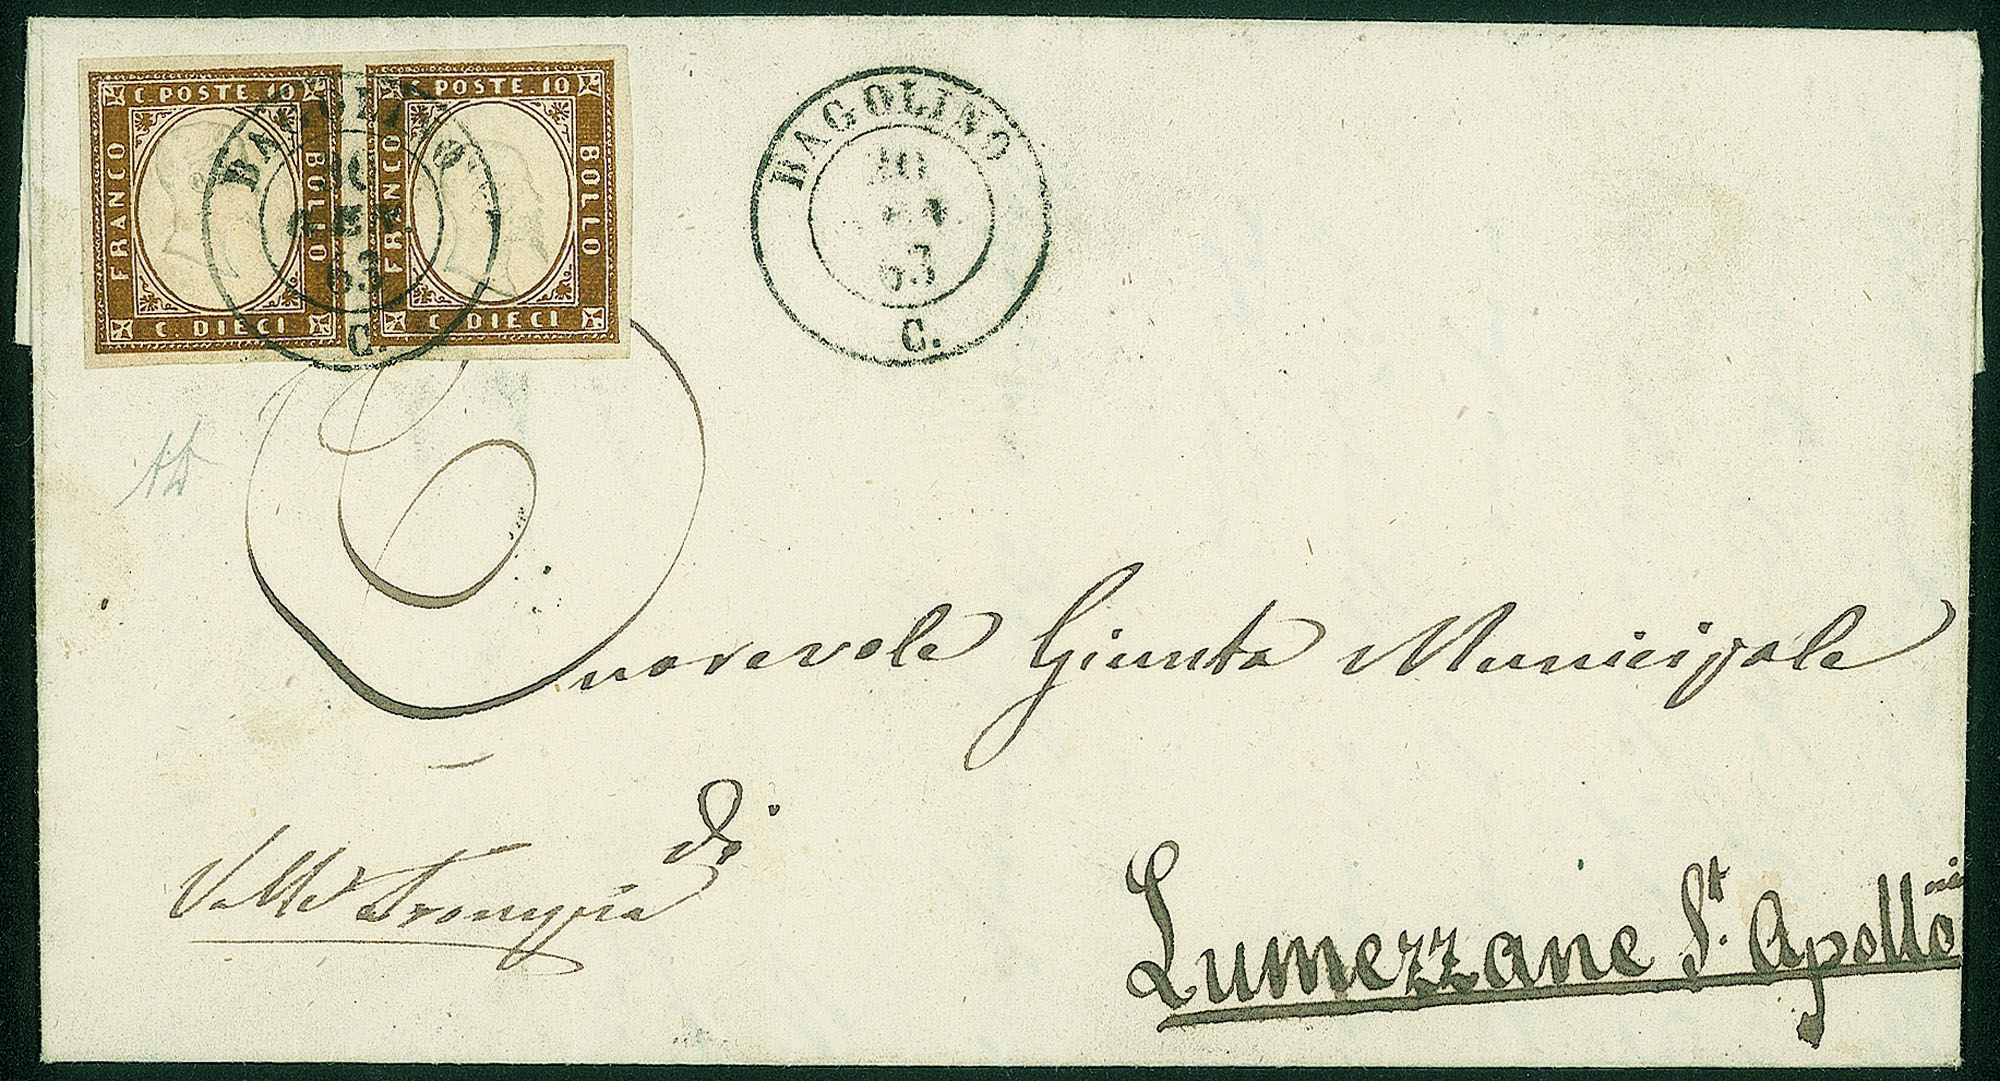 C POSTE 10
FRANCO
BOLLO
C. DIECI
C POSTE 10
FRANCO
BOLLO
C DIECI
BAGOLINO
10
GEN
63
C.
BAGOLINO
10
63
C.
Onorevole Giunta Municipale
di
Valle Trompia
Lumezzane St. Apollonio